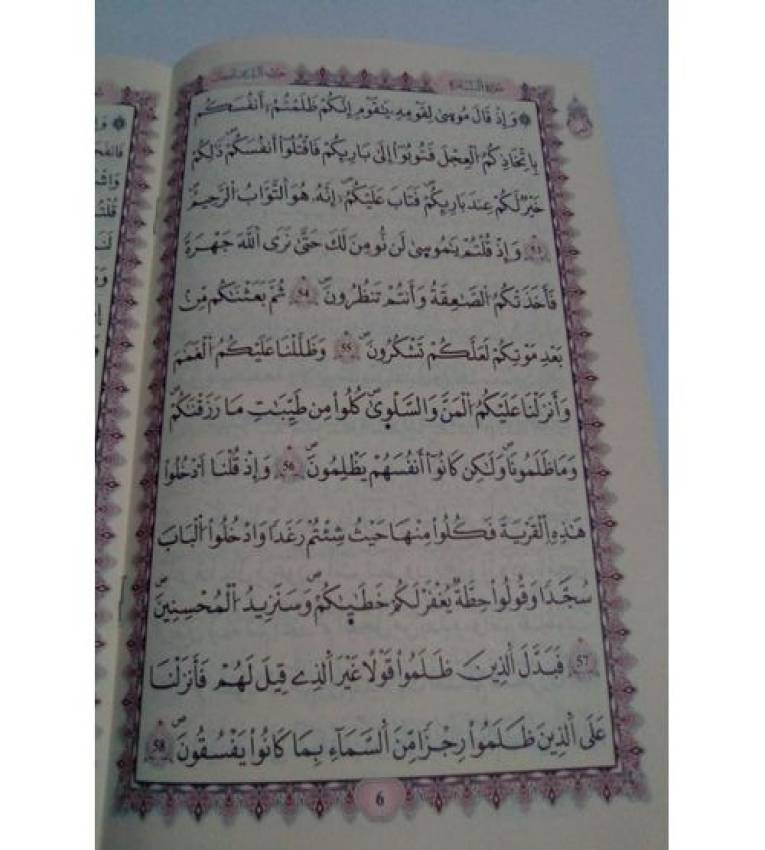 سورة البقرة
۞ وَإِذْ قَالَ مُوسَىٰ لِقَوْمِهِۦ يَٰقَوْمِ إِنَّكُمْ ظَلَمْتُمُۥٓ أَنفُسَكُم
بِاتِّخَاذِكُمُ اُلْعِجْلَ فَتُوبُوٓاْ إِلَىٰ بَارِئِكُمْ فَاقْتُلُوٓاْ أَنفُسَكُمْۖ ذَٰلِكُمْ
خَيْرٞ لَّكُمْ عِندَ بَارِئِكُمْ فَتَابَ عَلَيْكُمُۥٓۖ إِنَّهُۥ هُوَ اَلتَّوَّابُ اُلرَّحِيمُ
53 وَإِذْ قُلْتُمْ يَٰمُوسَىٰ لَن نُّومِنَ لَكَ حَتَّىٰ نَرَى اَللَّهَ جَهْرَةٗ
فَأَخَذَتْكُمُ اُلصَّٰعِقَةُ وَأَنتُمْ تَنظُرُونَۖ 54 ثُمَّ بَعَثْنَٰكُم مِّنۢ
بَعْدِ مَوْتِكُمْ لَعَلَّكُمْ تَشْكُرُونَۖ 55 وَظَلَّلْنَا عَلَيْكُمُ اُلْغَمَٰمَ
وَأَنزَلْنَا عَلَيْكُمُ اُلْمَنَّ وَالسَّلْوَىٰۖ كُلُواْ مِن طَيِّبَٰتِ مَا رَزَقْنَٰكُمْۖ
وَمَا ظَلَمُونَاۖ وَلَٰكِن كَانُوٓاْ أَنفُسَهُمْ يَظْلِمُونَۖ 56 وَإِذْ قُلْنَا اَدْخُلُواْ
هَٰذِهِ اِلْقَرْيَةَ فَكُلُواْ مِنْهَا حَيْثُ شِئْتُمْ رَغَداٗ وَادْخُلُواْ اُلْبَابَ
سُجَّداٗ وَقُولُواْ حِطَّةٞ يُغْفَرْ لَكُمْ خَطَٰيَٰكُمْۖ وَسَنَزِيدُ اُلْمُحْسِنِينَۖ
57 فَبَدَّلَ اَلَّذِينَ ظَلَمُواْ قَوْلًا غَيْرَ اَلَّذِے قِيلَ لَهُمْ فَأَنزَلْنَا
عَلَى اَلَّذِينَ ظَلَمُواْ رِجْزاٗ مِّنَ اَلسَّمَآءِ بِمَا كَانُواْ يَفْسُقُونَۖ 58
6